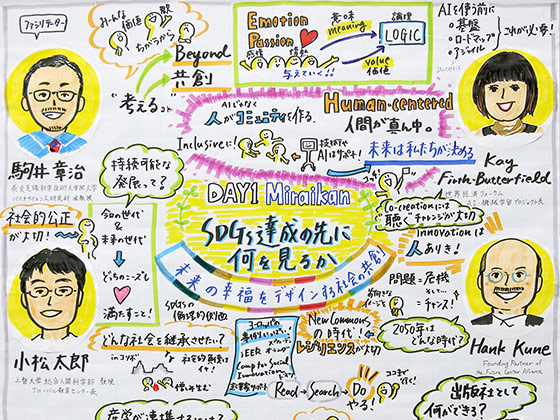 ファシリテーター
駒井 章治
奈良先端科学技術大学院大学
バイオサイエンス研究科 准教授
みんな
価値 観
ちがうから
Beyond
共創
"考えるコト"
Emotion
Passion
感情 情熱
与えていく!!
意味
meaning
論理
LOGIC
value
価値
AIを使う前に
基盤
ロードマップ
アジャイル
これが必要!
AIじゃなく
人がコミュニティを作る。
Human-centered
人間が真ん中。
Inclusiveに!
技術や
AIはサポート!
未来は私たちが決める
Kay
Firth-Butterfield
世界経済フォーラム
AI・機械学習プロジェクト長
持続可能な
発展って?
DAY1 Miraikan
SDGs達成の先に
何を見るか
未来の幸福をデザインする社会の共創
Co-creationには
聴くチャレンジが大切
Innovationは
人ありき!
社会的公正
が大切!
今の世代
&
未来の世代
どっちのニーズも
満たすこと!
小松 太郎
上智大学 総合人間科学部 教授
グローバル教育センター長
SDGsの
倫理的側面
どんな社会を継承させたい…?
inコソボ
New Commons
の時代!
レジリエンスが大切
問題=危機
チャンス!
2050年は
どんな時代?
Hank Kune
Founding Partner of
the Future Center Alliance
iEER
Camp for Social
Innovation
Read→Search→Do
やる!
出版社として
何ができる?